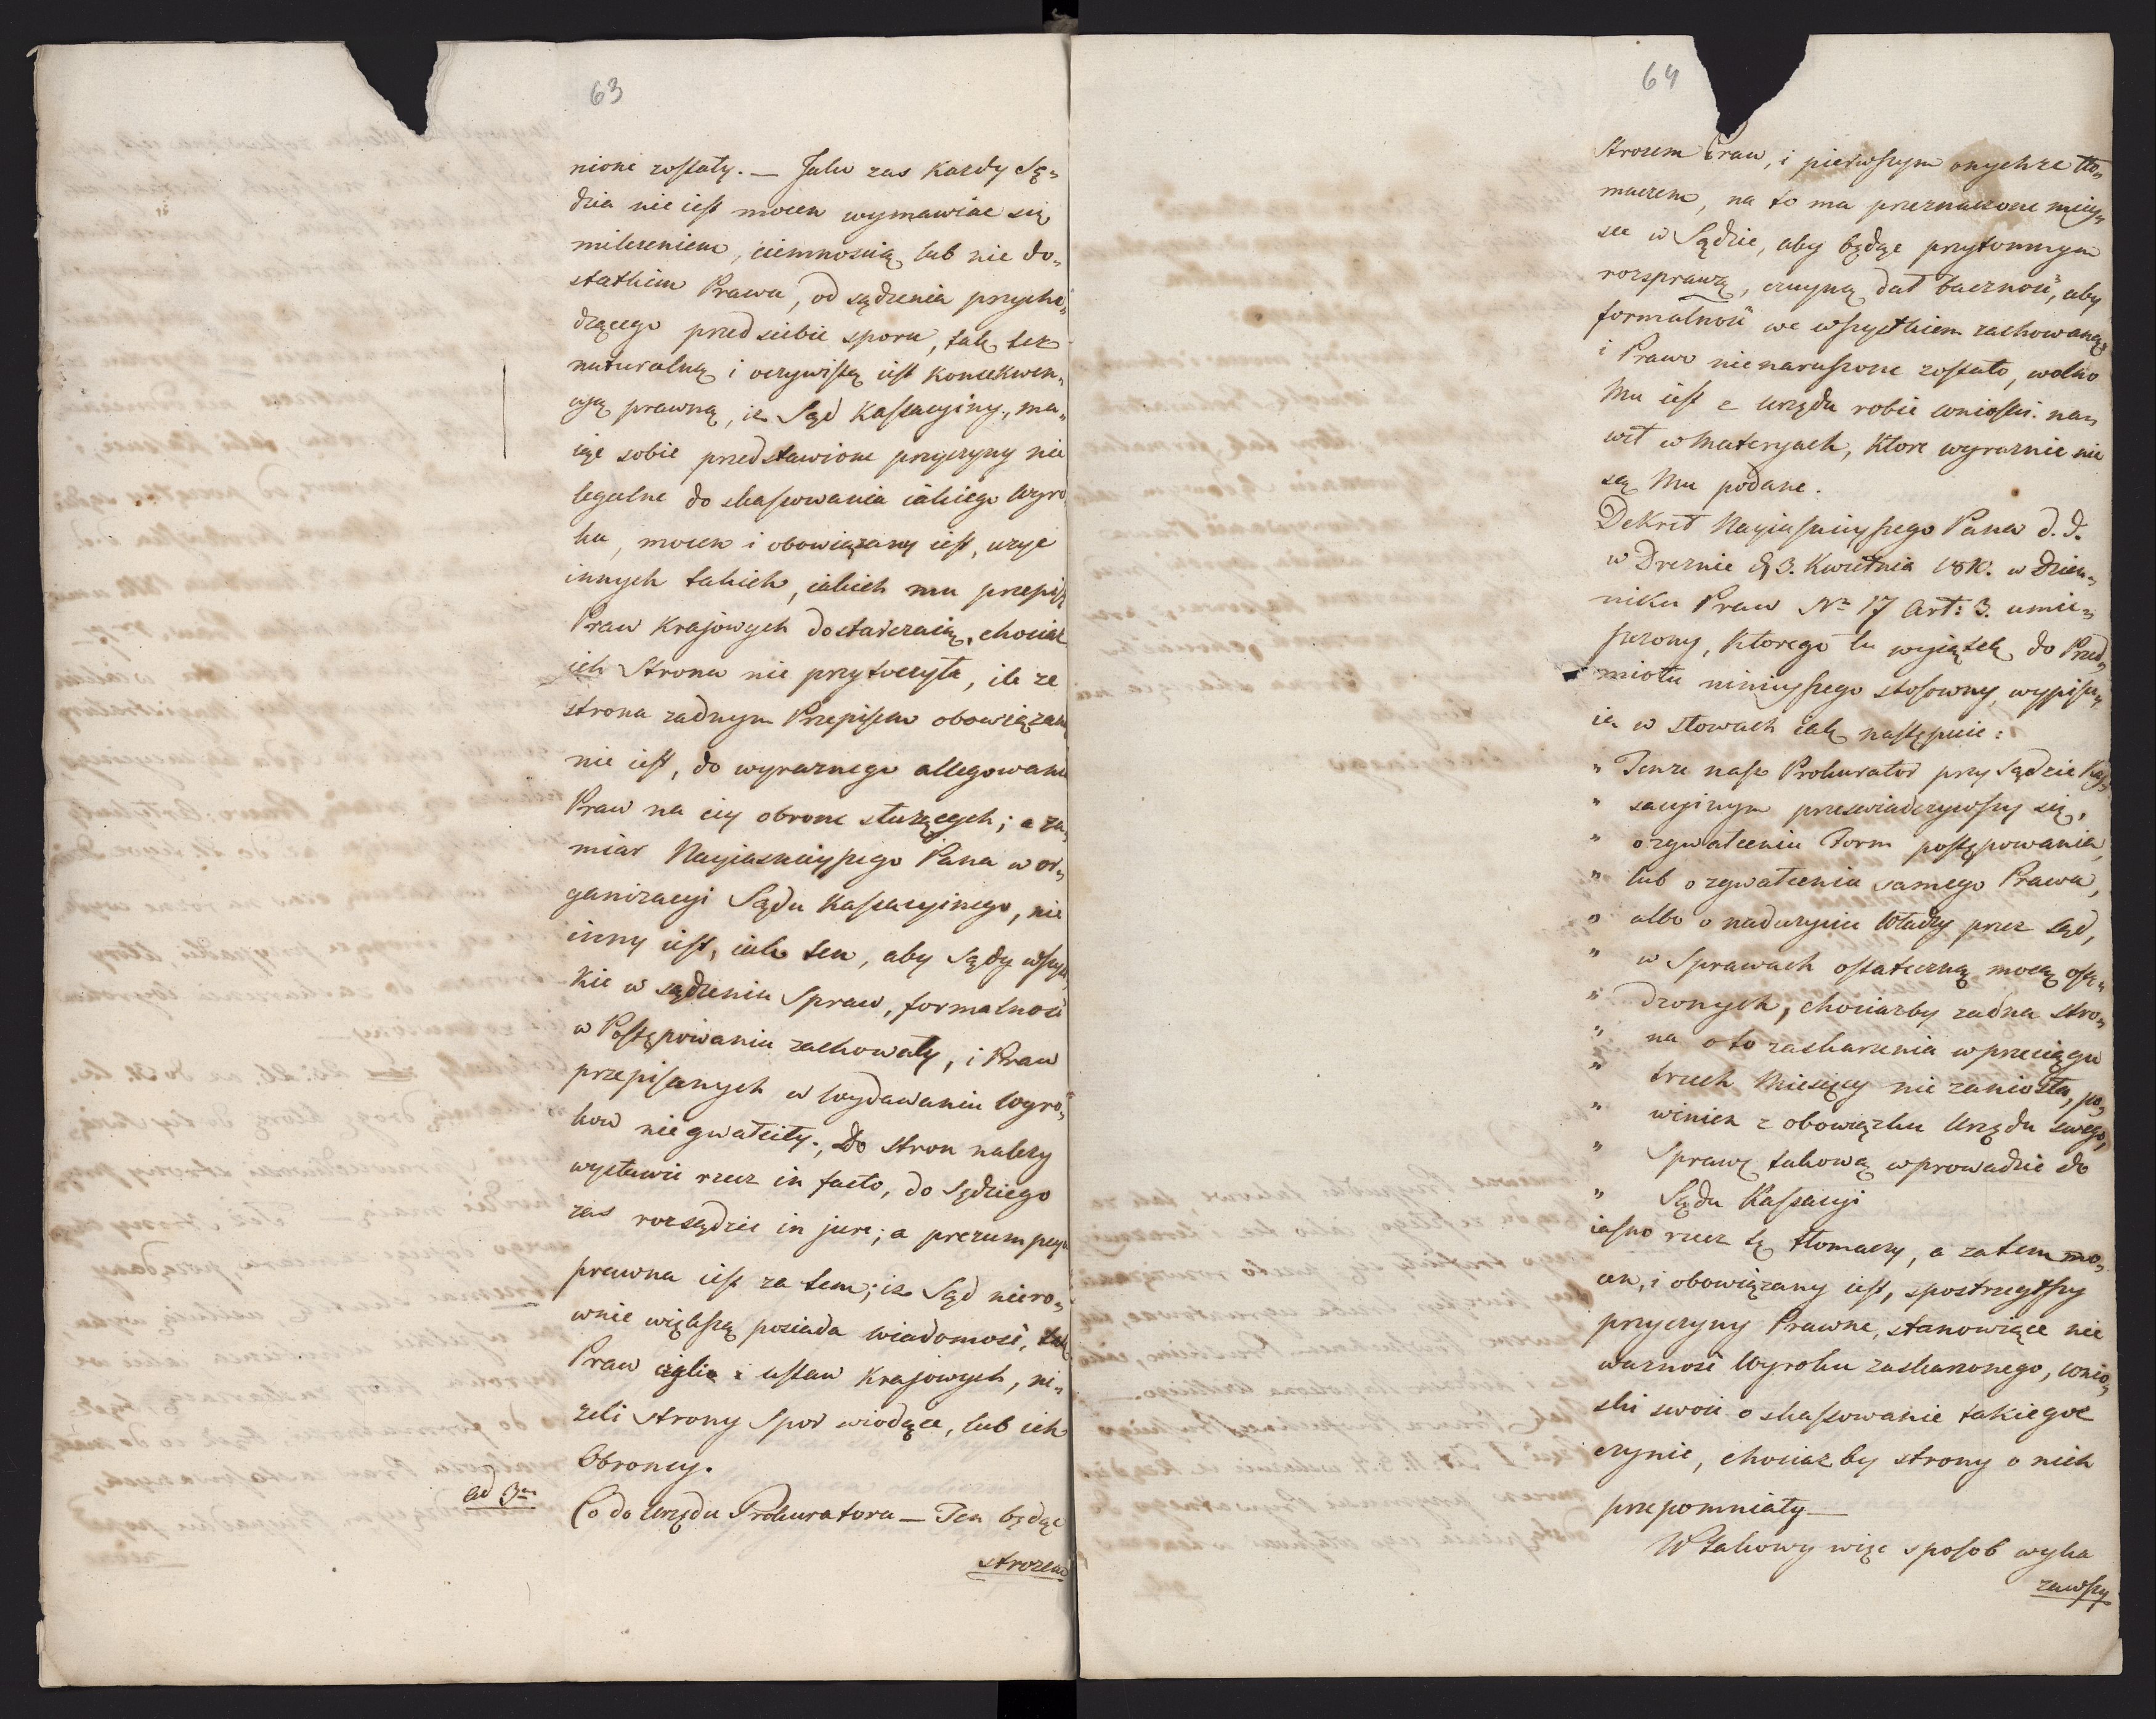 63
nione zostały. — Jako zas każdy Sę„
dzia nie iest mocen wymawiac się
milczeniem, ciemnoscią lub nie do„
statkiem Prawa, od sądzenia przycho„
dzącego przed siebie sporu, tak też
naturalną i oczywistą iest konsekwen„
cyą prawną, iż Sąd Kassacyiny, ma„
iąc sobie przedstawione przyczyny nie
legalne do skassowania iakiego Wyro
ku, mocen i obowiązany iest, użyć
innych takich, iakich mu przepisy
Praw Krajowych dostarczaią, chociaż
ich Strona nie przytoczyła, ile że
strona żadnym Przepisem obowiązaną
nie iest, do wyraznego allegowania
Praw na iey obronę służących; a za„
miar Nayiasnieyszego Pana w or„
ganizacyi Sądu Kassacyinego, nie
inny iest, iak ten, aby Sądy wszyst„
kie w sądzeniu Spraw, formalność
w Postępowaniu zachowały, i Praw
przepisanych w wydawaniu Wyro„
kow niegwałciły. Do stron należy
wystawić rzecz in facto, do Sędziego
zas rozsądzić in jure; a prezumpcya
prawna iest za tem; iż Sąd niero„
wnie większą posiada wiadomość, tak
Praw iako i ustaw Krajowych, ni„
żeli strony Spor wiodące, lub ich
Obroncy.
ad 3um Co do Urzędu Prokuratora — Ten będąc
stróżem
64
Strożem Praw, i pierwszym onychże tło„
maczem, na to ma przeznaczone miey„
sce w Sądzie, aby będąc przytomnym
rozsprawą, czuyną dał baczność, aby
formalność we wszystkiem zachowaną,
i Prawo nienaruszone zostało, wolno
Mu iest z Urzędu robić wnioski na„
wet w Materyach, które wyraźnie nie
są Mu podane.
Dekret Nayiasnieyszego Pana d. d.
w Dreznie d 3. Kwietnia 1810. w Dzien„
niku Praw No 17 Art: 3. umie„
szczony, którego tu wyiątek do Przed„
miotu ninieyszego stosowny, wypisu„
ię w słowach iak następuie:
„ Tenże nasz Prokurator przy Sądzie Kas„
„ sacyinym przeswiadczywszy się,
„ o zgwałceniu Form postępowania,
„ lub o zgwałceniu samego Prawa,
„ albo o nadużyciu Władzy przez Sąd,
„ w Sprawach ostateczną mocą osą„
„ dzonych, chociażby żadna stro„
„ na o to zaskarżenia w przeciągu
„ trzech Miesięcy nie zaniosła, po„
„ winien z obowiązku Urzędu swego,
„ Sprawę takową wprowadzić do
„ Sądu Kassacyi
iasno rzecz tę tłomaczy, a zatem mo„
cen, i obowiązany iest, spostrzegłszy
przyczyny Prawne, stanowiące nie
ważność Wyroku zaskarżonego, wnio„
ski swoie o skassowanie takiegoż
czynić, chociażby strony o nich
przepomniały —
W takowy więc sposob wyka
zawszy